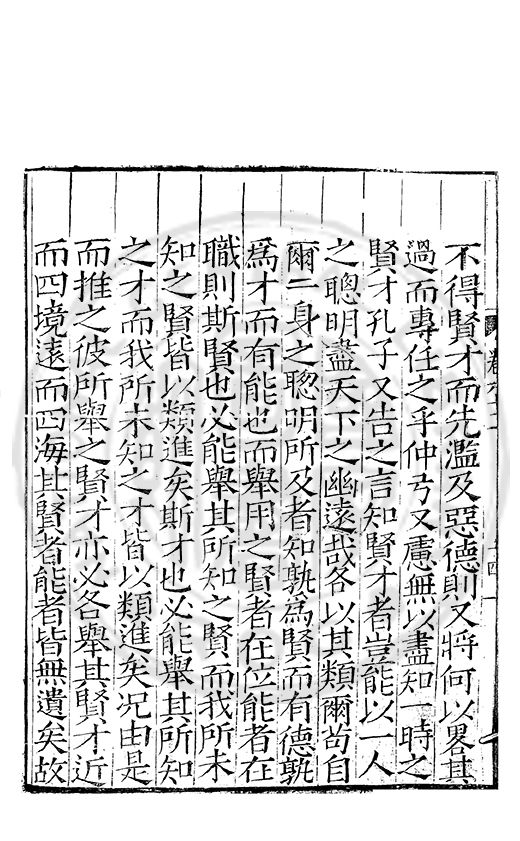 不得賢才而先濫及惡德則又將何以畧其
過而專任之乎仲弓又慮無以盡知一時之
賢才孔子又告之言知賢才者豈能以一人
之聰明盡天下之幽遠哉各以其類爾茍自
爾一身之聰明所及者知孰為賢而有德孰
為才而有能也而舉用之賢者在位能者在
職則斯賢也必能舉其所知之賢而我所未
知之賢皆以類進矣斯才也必能舉其所知
之才而我所未知之才皆以類進矣况由是
而推之彼所舉之賢才亦必各舉其賢才近
而四境遠而四海其賢者能者皆無遺矣故